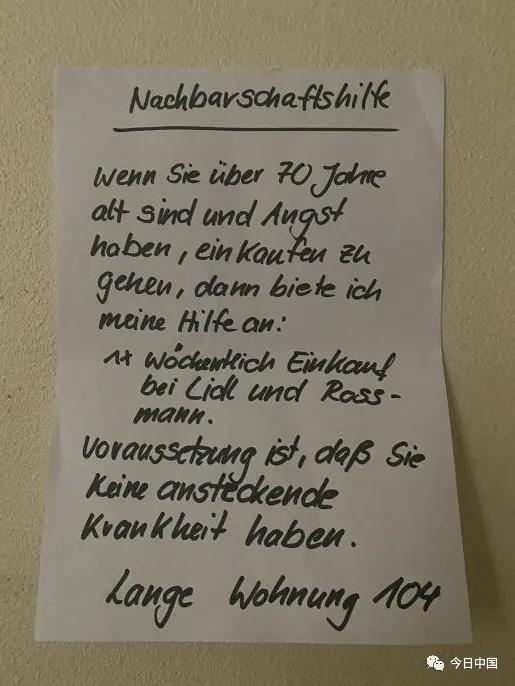 Nachbarschaftshilfe
Wenn Sie über 70 Jahre
alt sind und Angst
haben, einkaufen zu
gehen, dann biete ich
meine Hilfe an:
1x wöchentlich Einkauf
bei Lidl und Ross-
mann.
Voraussetzung ist, daß Sie
keine ansteckende
Krankheit haben.
Lange Wohnung 104
今日中国